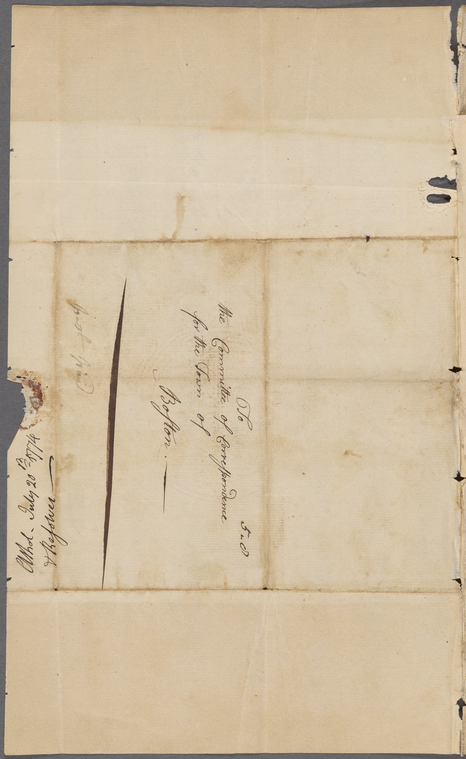 To
the Committee of Correspondence
for the Town of
Boston.
5..8
Athol - July 20th 1774
& Resolves